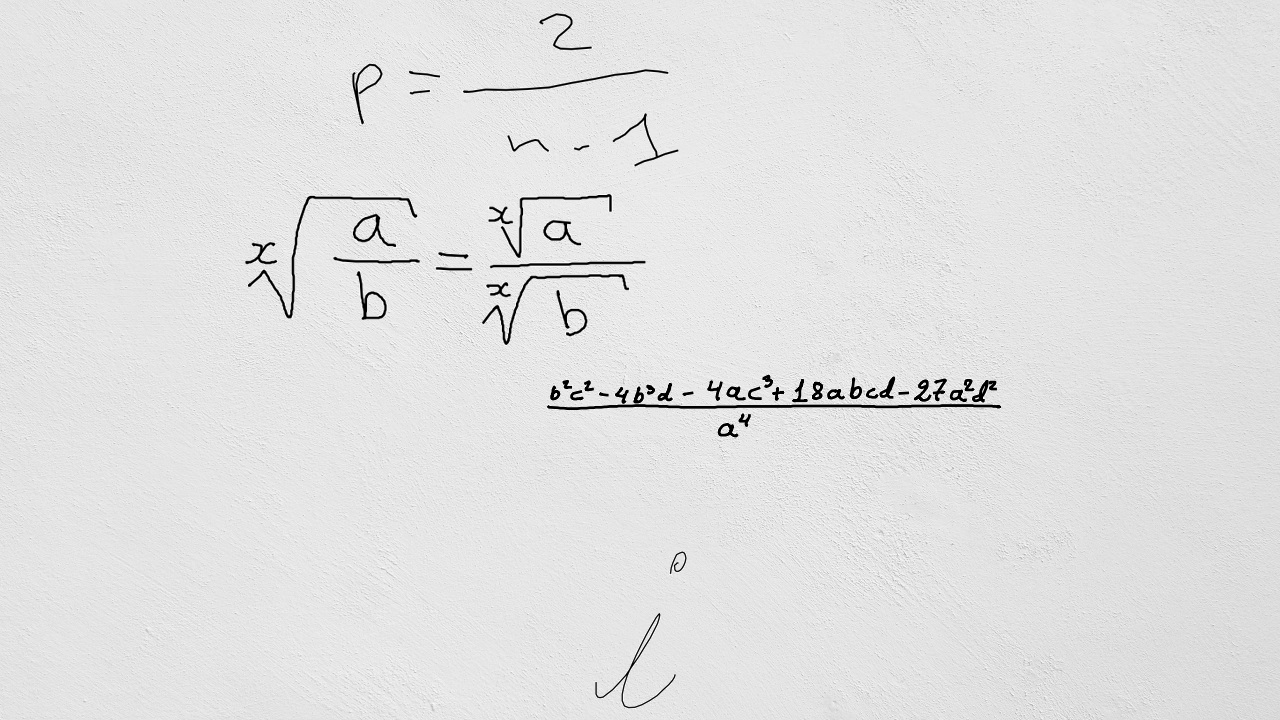 p = \frac{2}{n - 1}
\sqrt[x]{\frac{a}{b}} = \frac{\sqrt[x]{a}}{\sqrt[x]{b}}
\frac{b^2c^2 - 4b^3d - 4ac^3 + 18abcd - 27a^2d^2}{a^4}